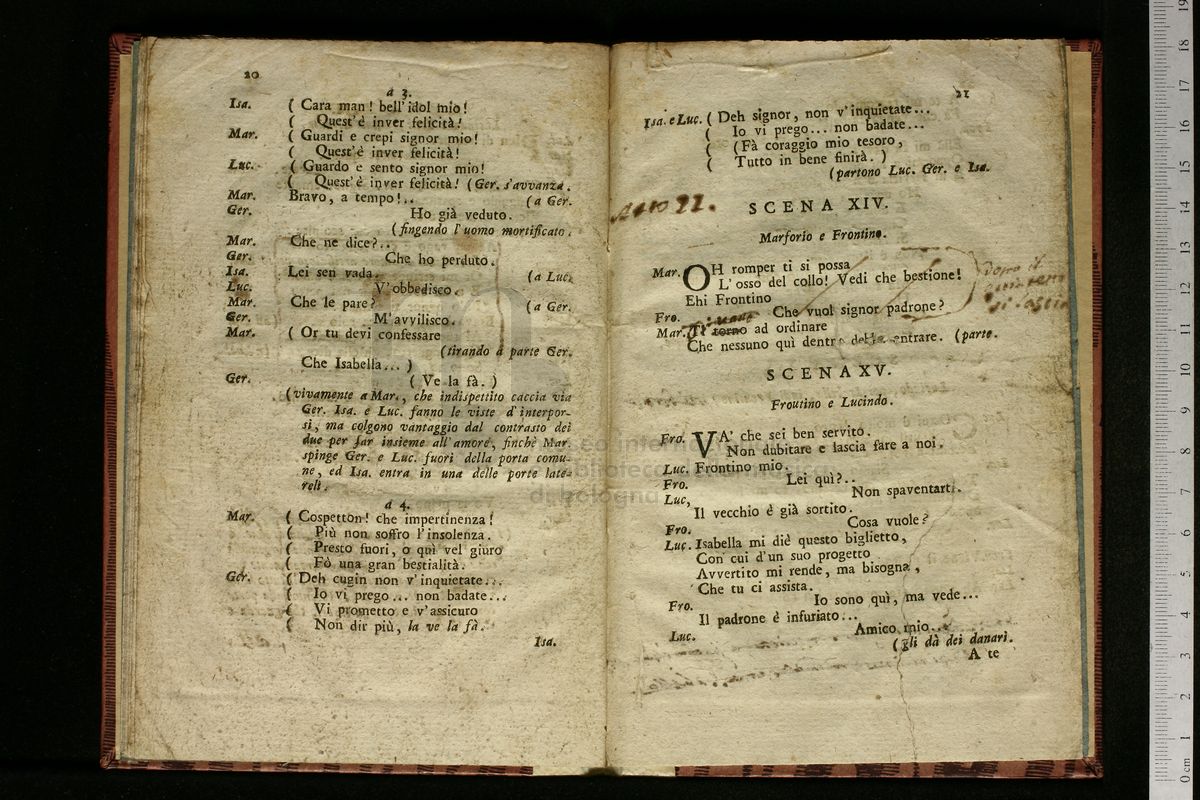 20
a 3.
Isa. ( Cara man! bell' idol mio!
( Quest' è inver felicità!
Mar. ( Guardi e crepi signor mio!
( Quest' è inver felicità!
Luc. ( Guardo e sento signor mio!
( Quest' è inver felicità! (Ger. s'avvanza.
Mar. Bravo, a tempo!.. (a Ger.
Ger. Ho già veduto.
(fingendo l'uomo mortificato.
Mar. Che ne dice?..
Ger. Che ho perduto.
Isa. Lei sen vada. (a Luc.
Luc. V'obbedisco.
Mar. Che le pare? (a Ger.
Ger. M'avvilisco.
Mar. ( Or tu devi confessare
(tirando a parte Ger.
Che Isabella... )
Ger. ( Ve la fà. )
(vivamente a Mar., che indispettito caccia via
Ger. Isa. e Luc. fanno le viste d'interpor-
si, ma colgono vantaggio dal contrasto dei
due per far insieme all'amore, finchè Mar.
spinge Ger. e Luc. fuori della porta comu-
ne, ed Isa. entra in una delle porte late-
reli.
a 4.
Mar. ( Cospetton! che impertinenza!
( Più non soffro l'insolenza.
( Presto fuori, o quì vel giuro
( Fò una gran bestialità.
Ger. ( Deh cugin non v'inquietate...
( Io vi prego... non badate...
( Vi prometto e v'assicuro
( Non dir più, la ve la fà.
Isa.
21
Isa. e Luc. ( Deh signor, non v'inquietate...
( Io vi prego... non badate...
( (Fà coraggio mio tesoro,
( Tutto in bene finirà. )
(partono Luc. Ger. e Isa.
Atto II.
SCENA XIV.
Marforio e Frontino.
Mar. OH romper ti si possa
L'osso del collo! Vedi che bestione!
Ehi Frontino
dopo il
si lascia
Fro. Che vuol signor padrone?
Mar. Ti torno ad ordinare
Che nessuno quì dentro debba entrare. (parte.
SCENA XV.
Froutino e Lucindo.
Fro. VA' che sei ben servito.
Non dubitare e lascia fare a noi.
Luc. Frontino mio.
Fro. Lei quì?..
Luc, Non spaventarti.
Il vecchio è già sortito.
Fro. Cosa vuole?
Luc. Isabella mi diè questo biglietto,
Con cui d'un suo progetto
Avvertito mi rende, ma bisogna,
Che tu ci assista.
Fro. Io sono quì, ma vede...
Il padrone è infuriato...
Luc. Amico mio...
(gli dà dei danari.
A te